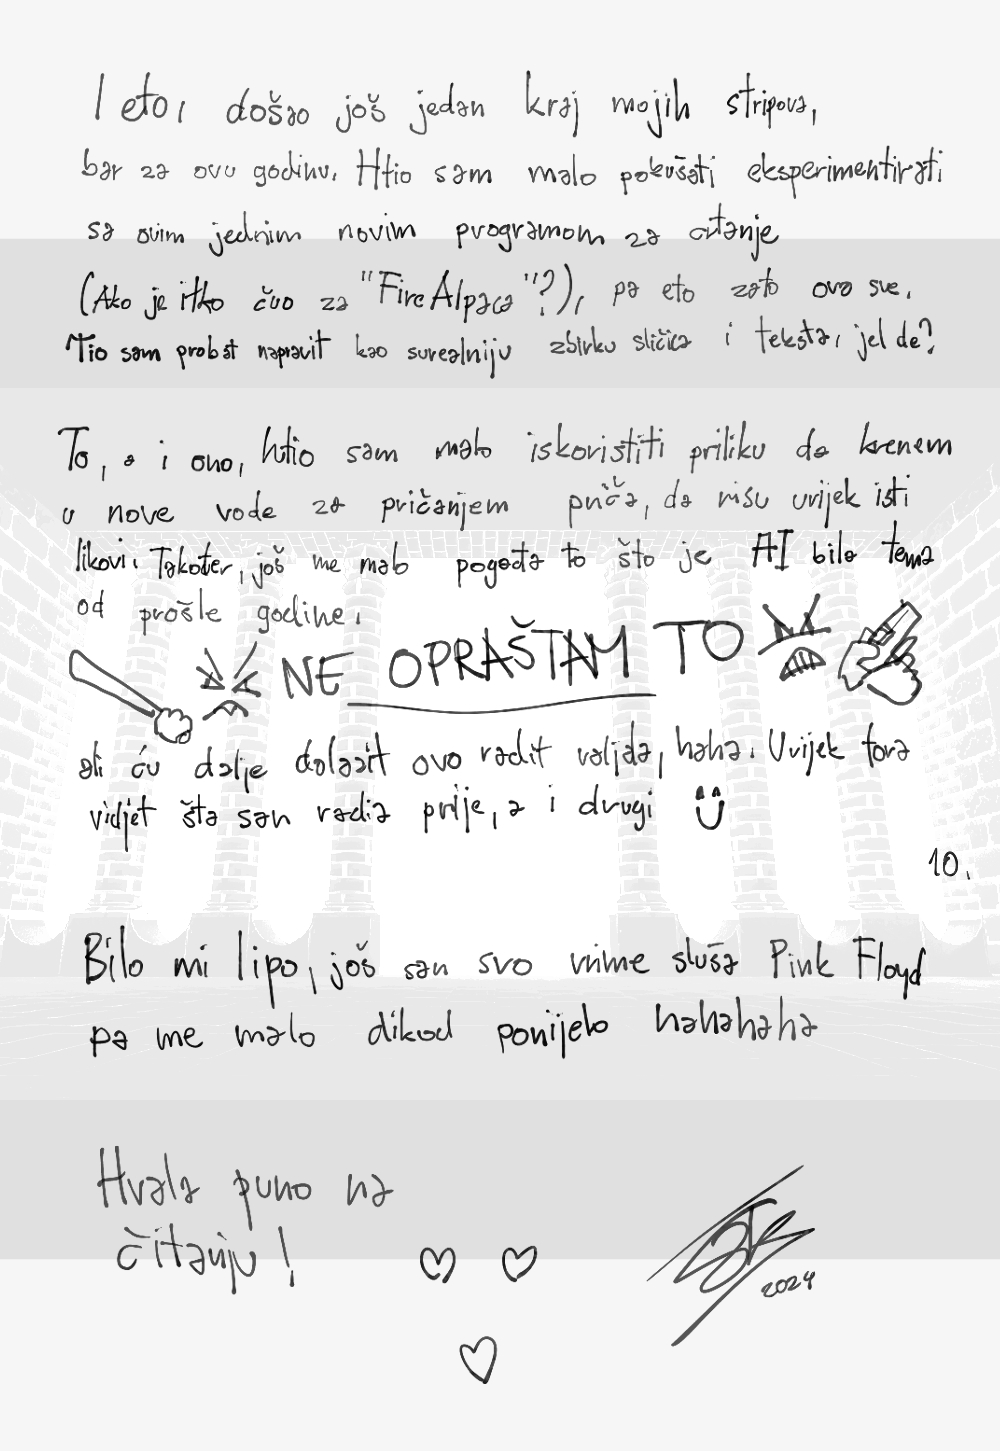 I eto, došao još jedan kraj mojih stripova,
bar za ovu godinu. Htio sam malo pokušati eksperimentirati
sa ovim jednim novim programom za crtanje
(Ako je itko čuo za "FireAlpaca"?), pa eto zato ovo sve.
Tio sam probat napravit kao surealniju zbirku sličica i teksta, jel de?
To, a i ono, htio sam malo iskoristiti priliku da krenem
u nove vode za pričanjem priča, da nisu uvijek isti
likovi. Također, još me malo pogađa to što je AI bila tema
od prošle godine.
NE OPRAŠTAM TO
ali ću dalje dolazit ovo radit valjda, haha. Uvijek fora
vidjet šta san radia prije, a i drugi
10.
Bilo mi lipo, još san svo vrime sluša Pink Floyd
pa me malo dikod ponijelo hahahaha
Hvala puno na
čitanju!
2024